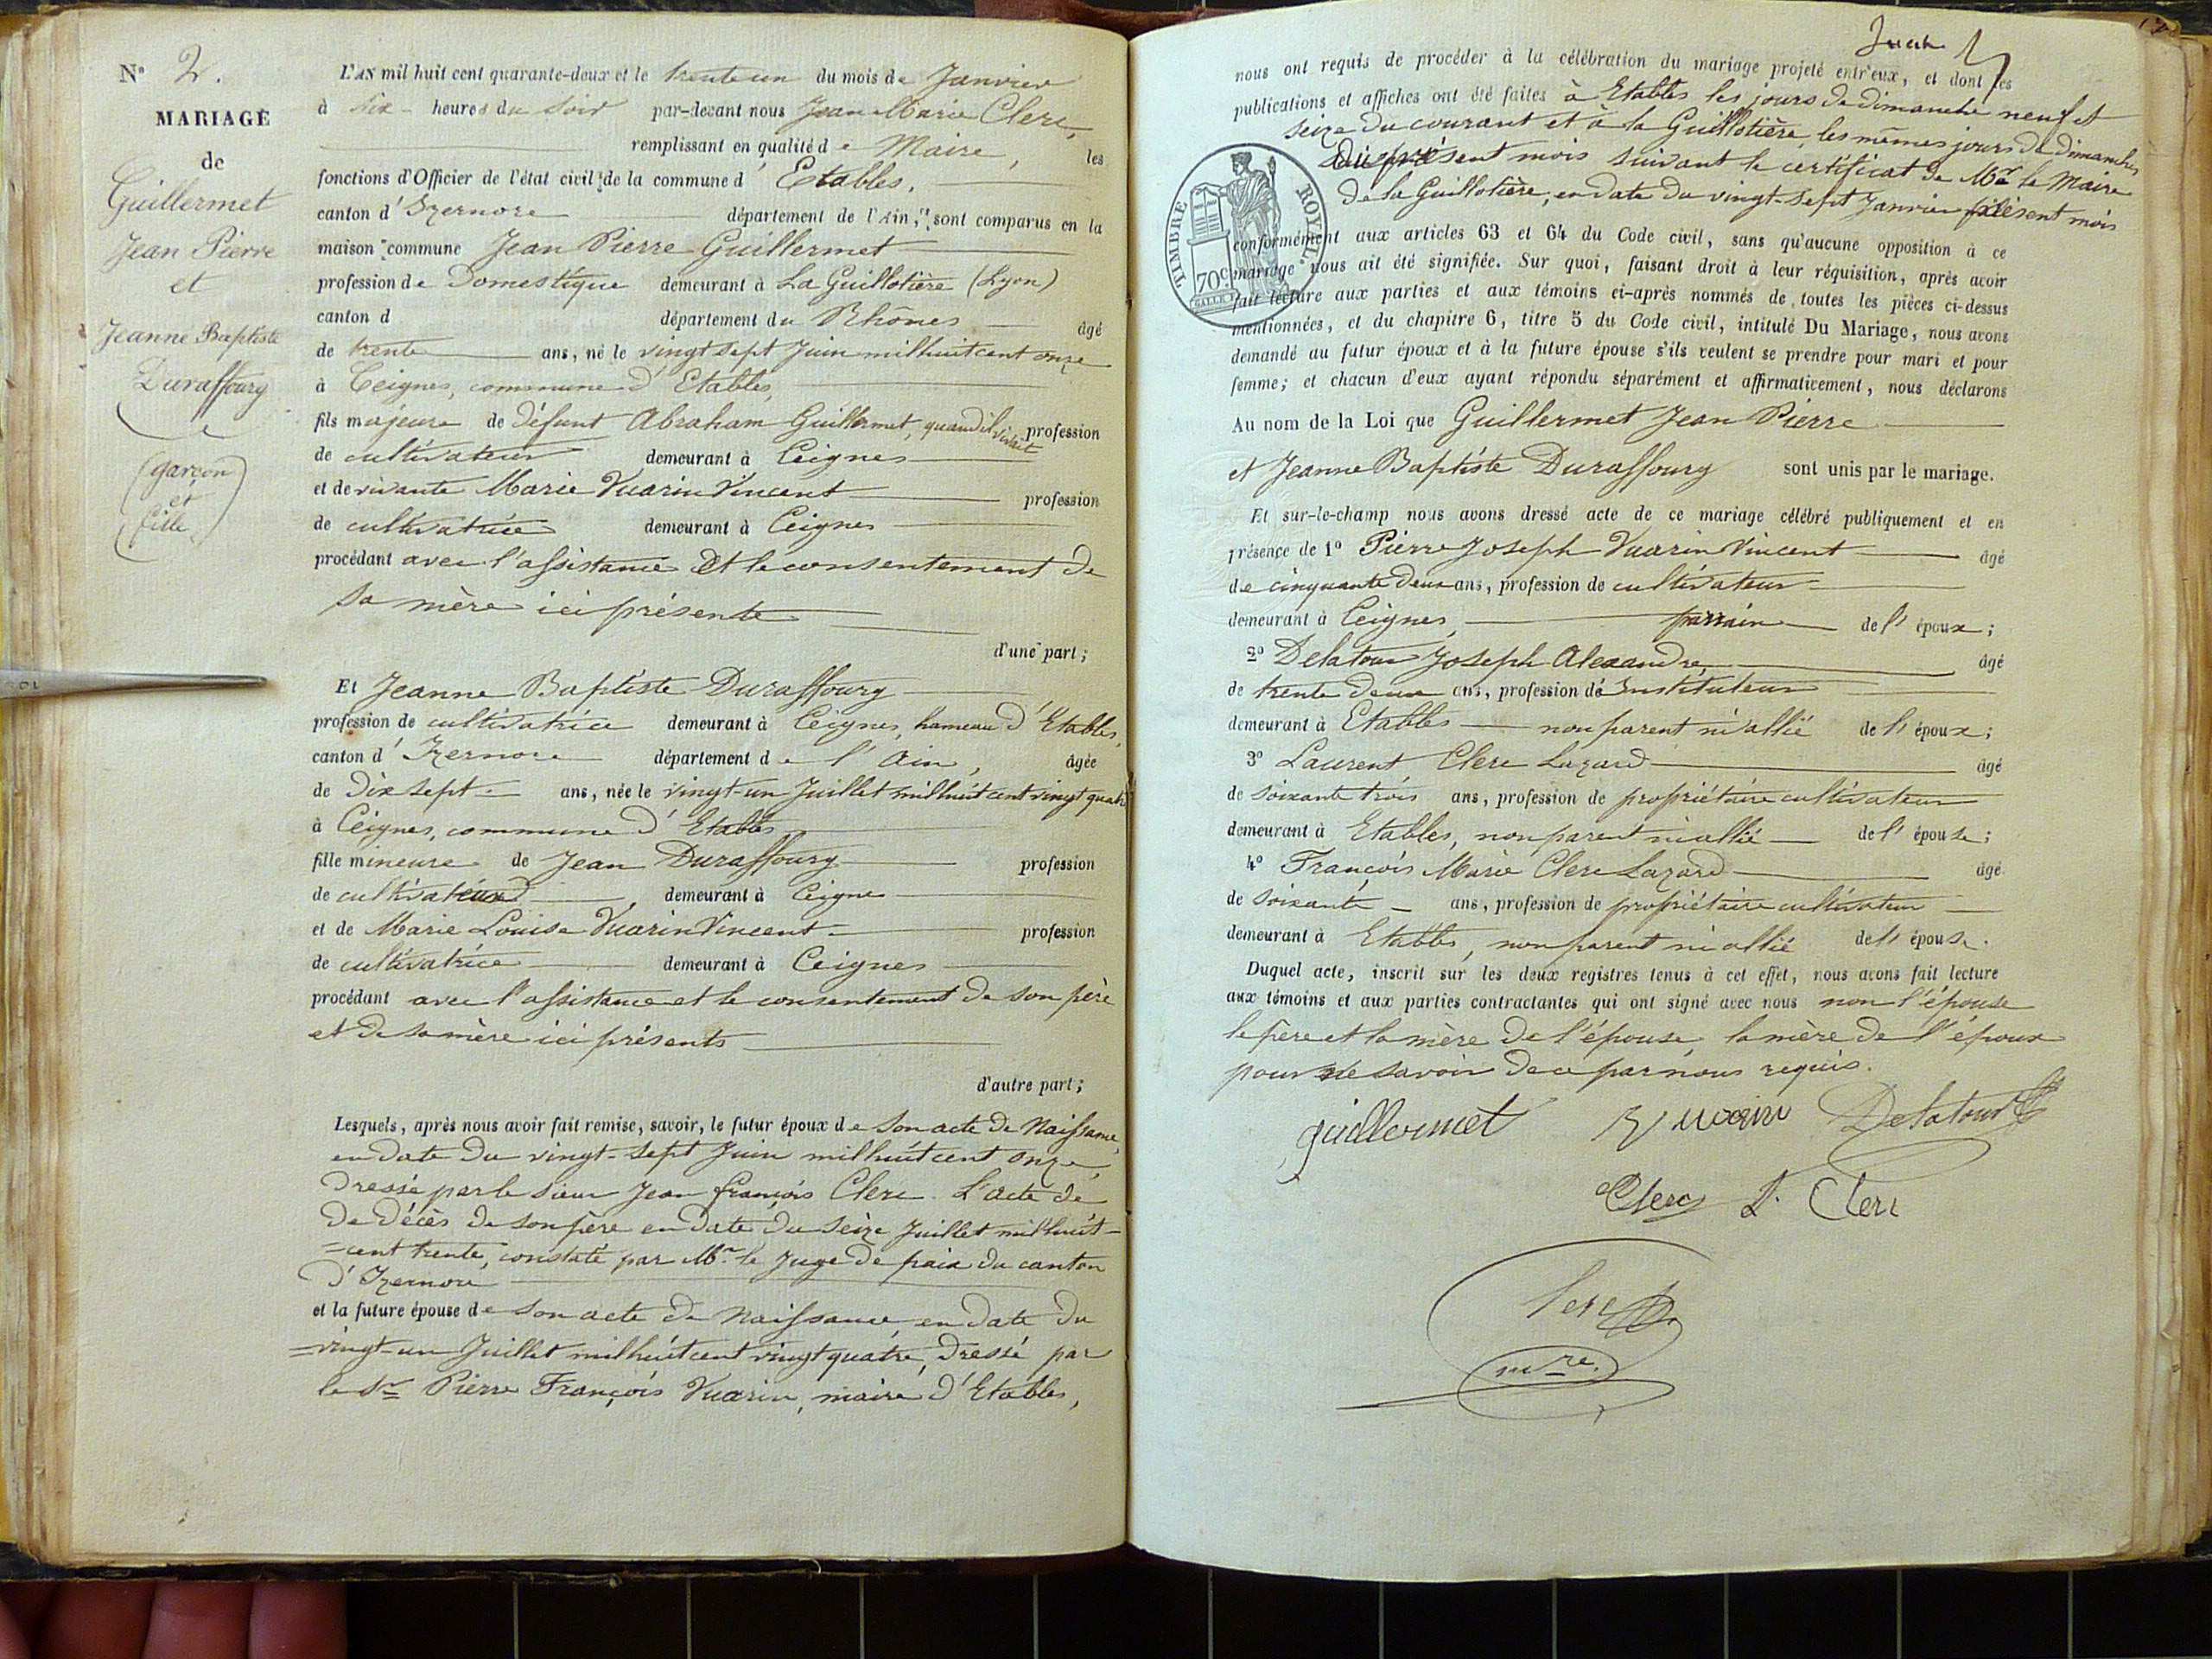 N° 2.
MARIAGE
de
Guillermet
Jean Pierre
et
Jeanne Baptiste
Duraffourg
(garçon
et
fille)
L'AN mil huit cent quarante-deux et le trente un du mois de Janvier
à six heures du soir par-devant nous Jean Marie Clerc,
remplissant en qualité de Maire, les
fonctions d'Officier de l'état civil de la commune d'Etables,
canton d'Izernore département de l'Ain, sont comparus en la
maison commune Jean Pierre Guillermet
profession de Domestique demeurant à La Guillotière (Lyon)
canton d département du Rhônes âgé
de trente ans, né le vingt sept Juin mil huit cent onze
à Ceignes, commune d'Etables,
fils majeure de défunt Abraham Guillermet, quand il vivait profession
de cultivateur demeurant à Ceignes
et de vivante Marie Vuarin Vincent profession
de cultivatrice demeurant à Ceignes
procédant avec l'assistance et le consentement de
sa mère ici présente
d'une part;
Et Jeanne Baptiste Duraffourg
profession de cultivatrice demeurant à Ceignes, hameau d'Etables,
canton d'Izernore département de l'Ain, âgée
de dix sept ans, née le vingt-un Juillet mil huit cent vingt quatre
à Ceignes, commune d'Etables
fille mineure de Jean Duraffourg profession
de cultivateur demeurant à Ceigne
et de Marie Louise Vuarin Vincent profession
de cultivatrice demeurant à Ceignes
procédant avec l'assistance et le consentement de son père
et de sa mère ici présents
d'autre part;
Lesquels, après nous avoir fait remise, savoir, le futur époux de son acte de Naissance,
en date du vingt-sept Juin mil huit cent onze,
dressé par le sieur Jean françois Clerc. L'acte de
de décès de son père en date du seize Juillet mil huit-
=cent trente, constaté par Mr. le Juge de paix du canton
d'Izernore
et la future épouse de son acte de Naissance en date du
=vingt-un Juillet mil huit cent vingt quatre, dressé par
le Sr Pierre François Vuarin, maire d'Etables,
nous ont requis de procéder à la célébration du mariage projeté entr'eux, et dont les
publications et affiches ont été faites à Etables les jours de dimanche neuf et
seize du courant et à la Guillotière, les mêmes jours de dimanches
du présent mois suivant le certificat de Mr le Maire
de la Guillotière, en date du vingt-sept Janvier présent mois
TIMBRE ROYAL.
70c.
conformément aux articles 63 et 64 du Code civil, sans qu'aucune opposition à ce
mariage nous ait été signifiée. Sur quoi, faisant droit à leur réquisition, après avoir
fait lecture aux parties et aux témoins ci-après nommés de toutes les pièces ci-dessus
mentionnées, et du chapitre 6, titre 5 du Code civil, intitulé Du Mariage, nous avons
demandé au futur époux et à la future épouse s'ils veulent se prendre pour mari et pour
femme; et chacun d'eux ayant répondu séparément et affirmativement, nous déclarons
Au nom de la Loi que Guillermet Jean Pierre
et Jeanne Baptiste Duraffourg sont unis par le mariage.
Et sur-le-champ nous avons dressé acte de ce mariage célébré publiquement et en
présence de 1° Pierre Joseph Vuarin Vincent âgé
de cinquante deux ans, profession de cultivateur
demeurant à Ceignes, parrain de l'époux;
2° Delatour Joseph Alexandre, âgé
de trente deux ans, profession de Instituteur
demeurant à Etables non parent ni allié de l'époux;
3° Laurent Clerc Lazard âgé
de soixante trois ans, profession de propriétaire cultivateur
demeurant à Etables, non parent ni allié de l'épouse;
4° François Marie Clerc Lazard âgé
de soixante ans, profession de propriétaire cultivateur
demeurant à Etables, non parent ni allié de l'épouse.
Duquel acte, inscrit sur les deux registres tenus à cet effet, nous avons fait lecture
aux témoins et aux parties contractantes qui ont signé avec nous non l'épouse
le père et la mère de l'épouse, la mère de l'époux
pour ne savoir de ce par nous requis.
guillermet Vuarin Delatour
Clerc L. Clerc
Clerc
mre.